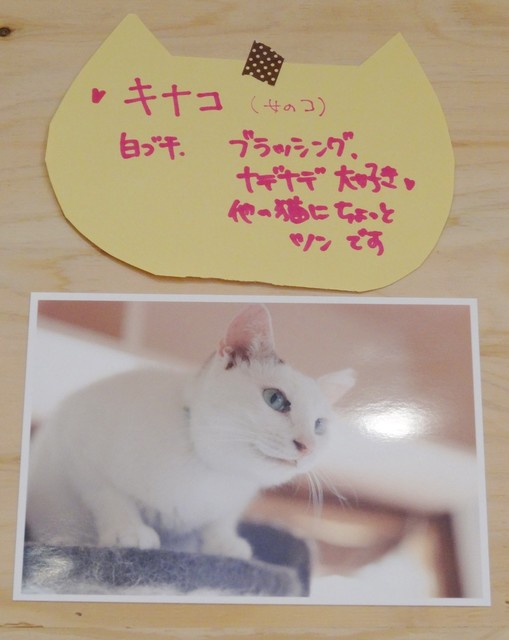 ♥ キナコ (女のコ)
白ブチ. ブラッシング、
ナデナデ 大好き♥
他の猫にちょっと
ツン です